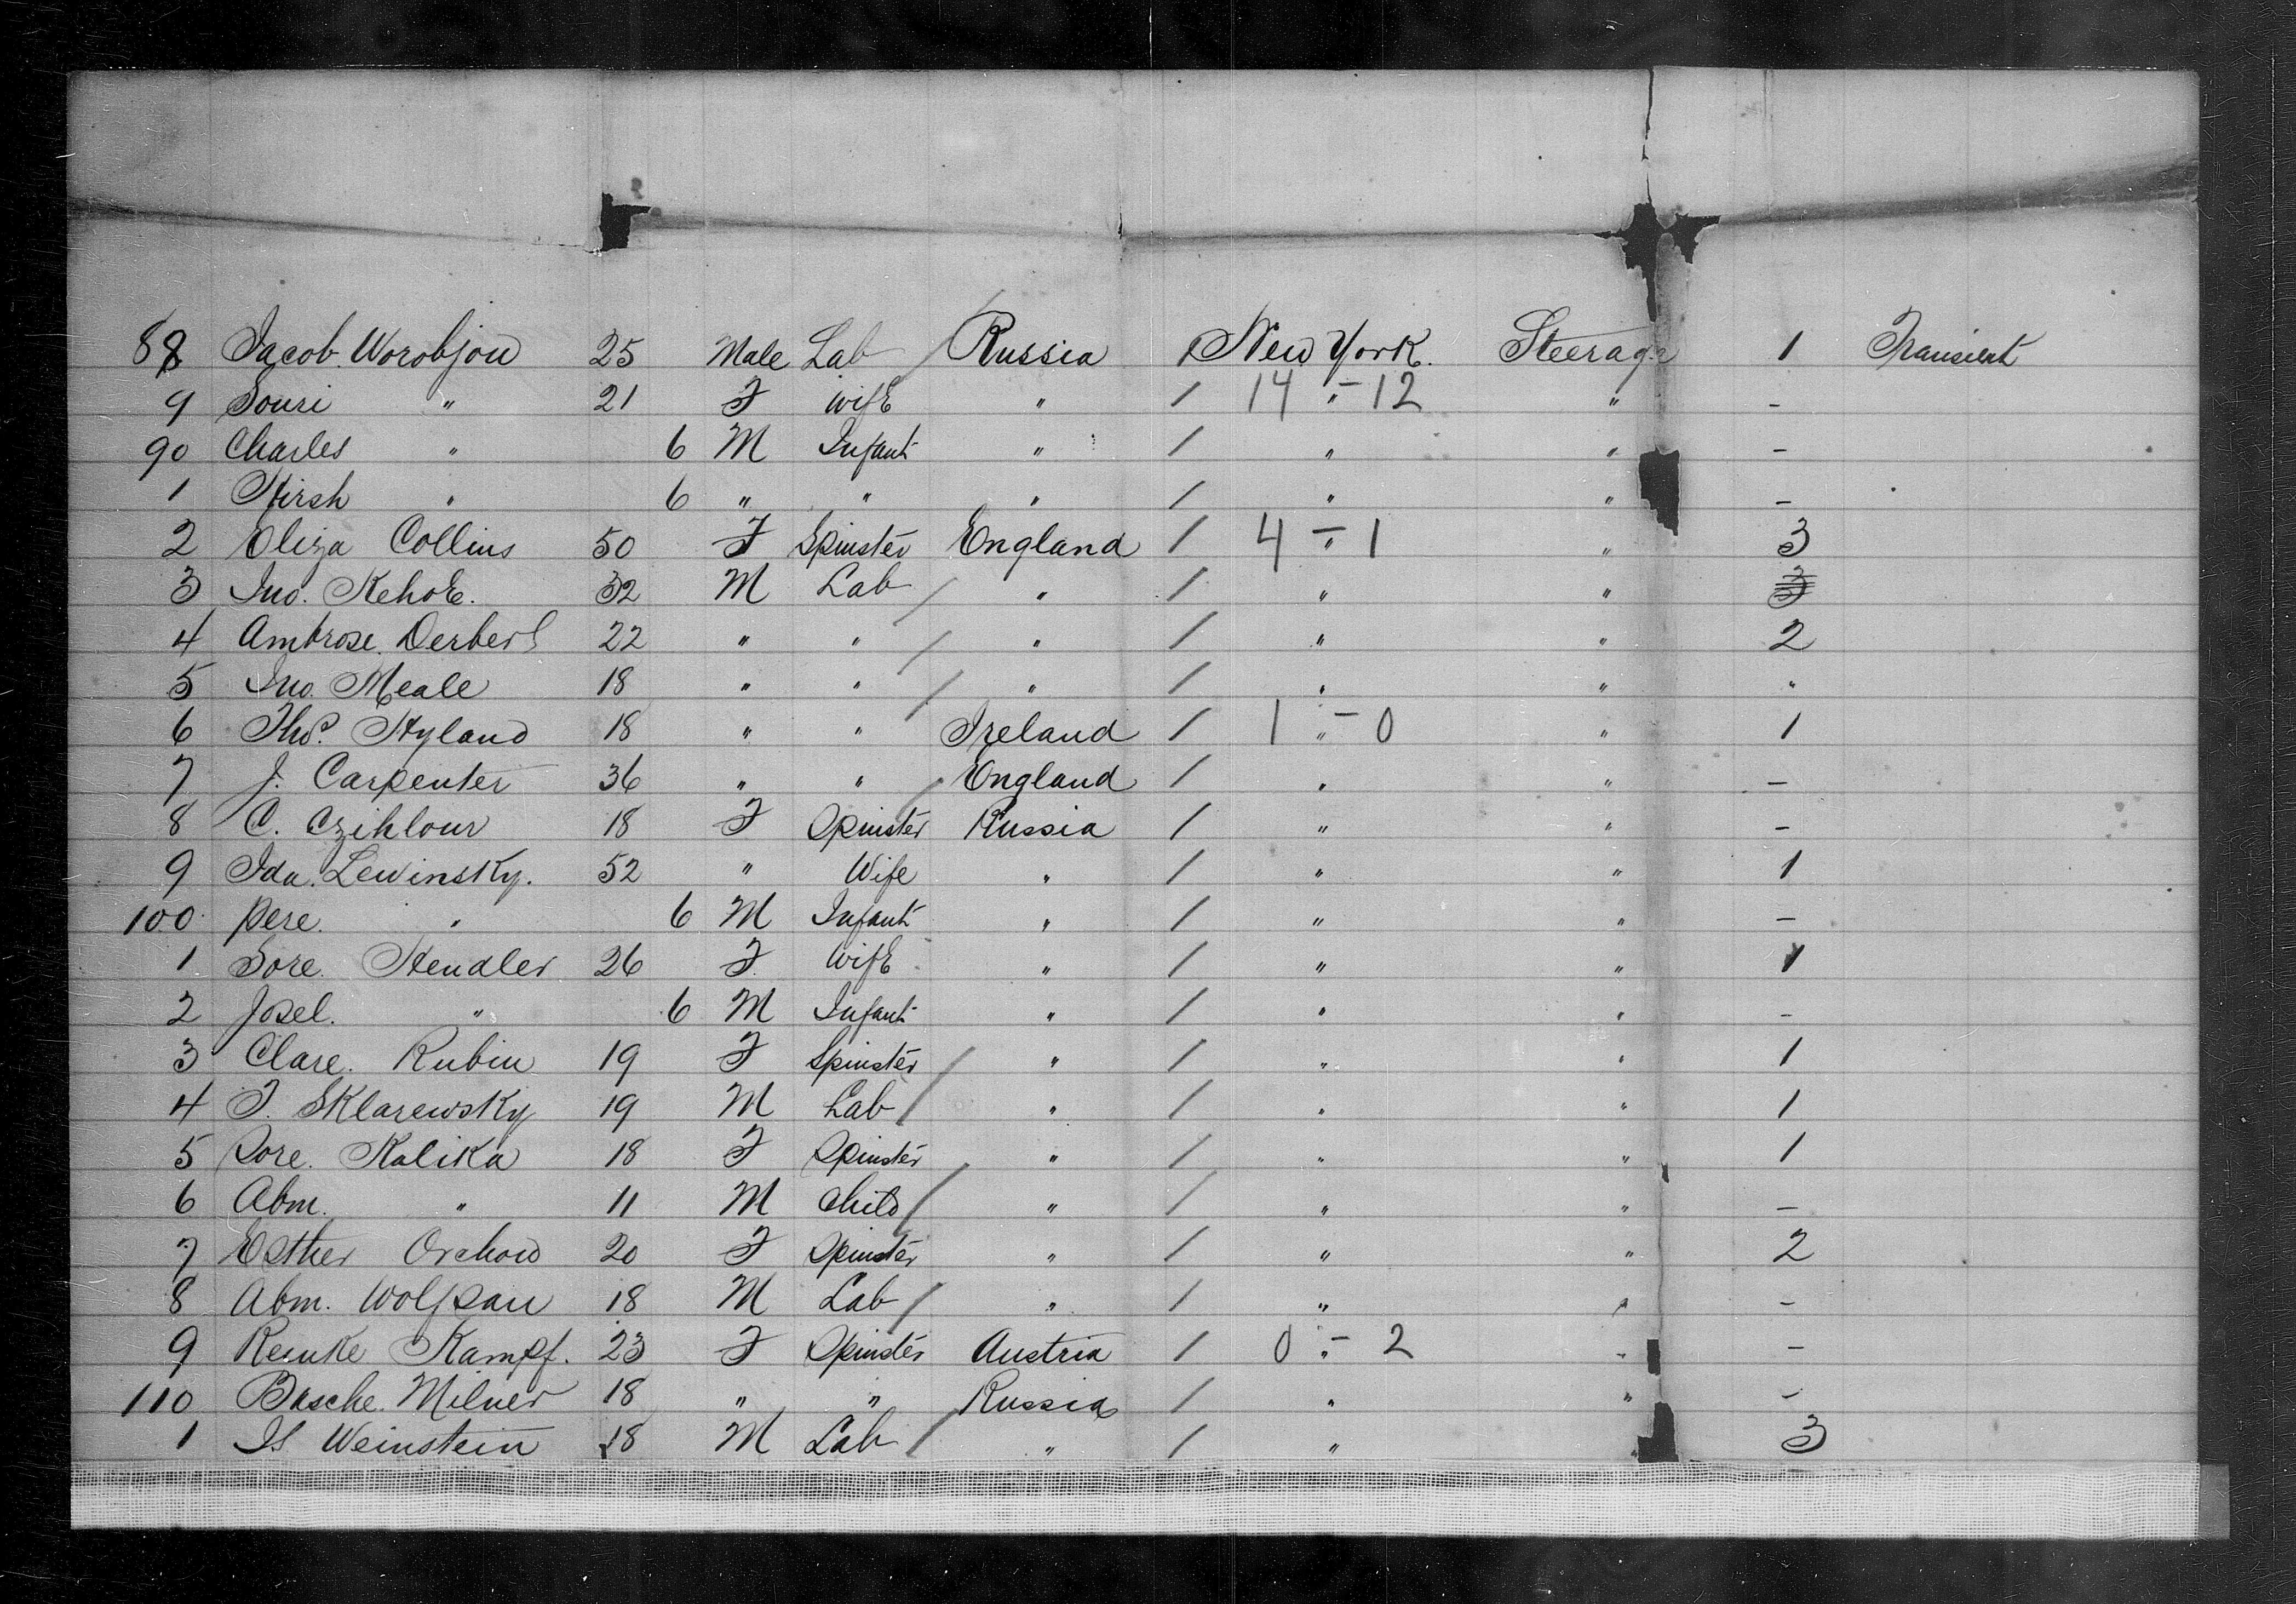 88 Jacob Worobjow 25 Male Lab / Russia 1 New York. Steerage 1 Transient
9 Souri " 21 F Wife " / 14 " - 12 " -
90 Charles " 6 M Infant " / " " -
1 Hirsh " 6 " " " / " " -
2 Eliza Collins 50 F Spinster England / 4 " - 1 " 3
3 Jno. Kehoe. 32 M Lab / " / " " 3
4 Ambrose 22 " " / " / " " 2
5 Jno. Meale 18 " " / " / " " "
6 Thos. Hyland 18 " " Ireland / 1 " - 0 " 1
7 J. Carpenter 36 " " / England / " " -
8 C. 18 F Spinster Russia / " " -
9 Ida. Lewinsky. 52 " Wife " / " " 1
100 Pere. " 6 M Infant " / " " -
1 Sore. Hendler 26 F. Wife " / " " 1
2 Josel. " 6 M Infant " / " " -
3 Clare. Rubin 19 F Spinster / " / " " 1
4 Sklarewsky 19 M Lab / " / " " 1
5 Sore. Kalika 18 F Spinster " / " " 1
6 Abm. " 11 M Child / " / " " -
7 Esther Orchow 20 F Spinster " / " " 2
8 Abm. Wolfsau 18 M Lab / " / " " -
9 Kampf. 23 F Spinster Austria / 0 " - 2 " -
110 Basche. Milner 18 " " Russia / " " -
1 Is Weinstein 18 M Lab / " / " 3